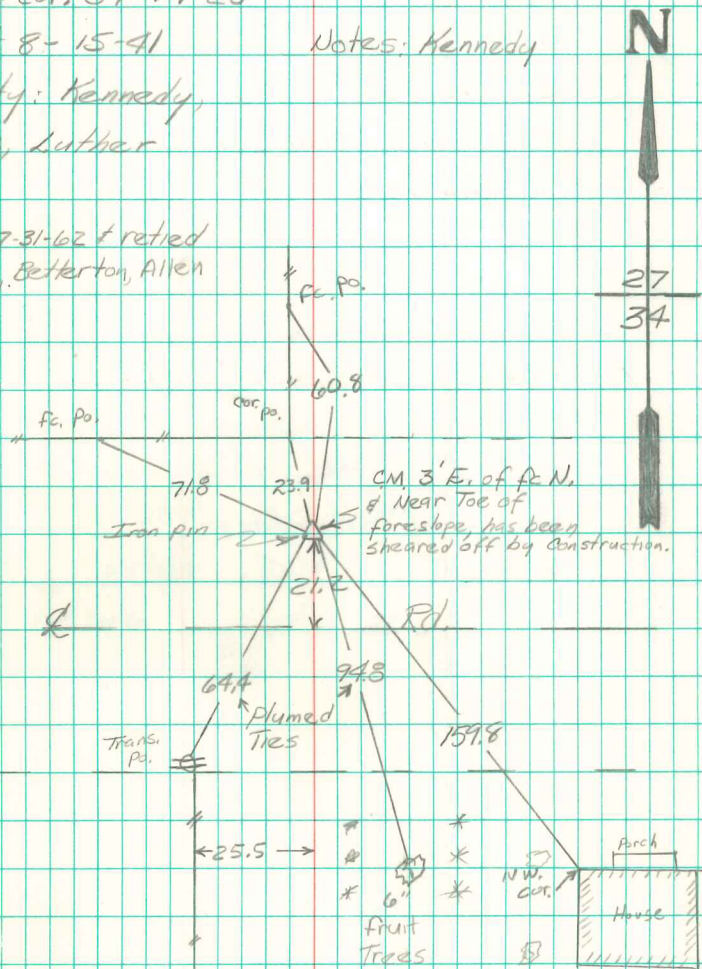 8-15-41
Notes: Kennedy
N
ty: Kennedy,
Luther
7-31-62 & retied
Betterton, Allen
27
34
fc. po.
60.8
cor. po.
fc. po.
71.8
23.9
CM, 3' E. of fc N.
& Near Toe of
foreslope, has been
sheared off by Construction.
Iron pin
21.2
℄
Rd.
64.4
94.8
Plumed
Ties
159.8
Trans.
po.
25.5
Porch
N.W.
cor.
House
6"
fruit
Trees